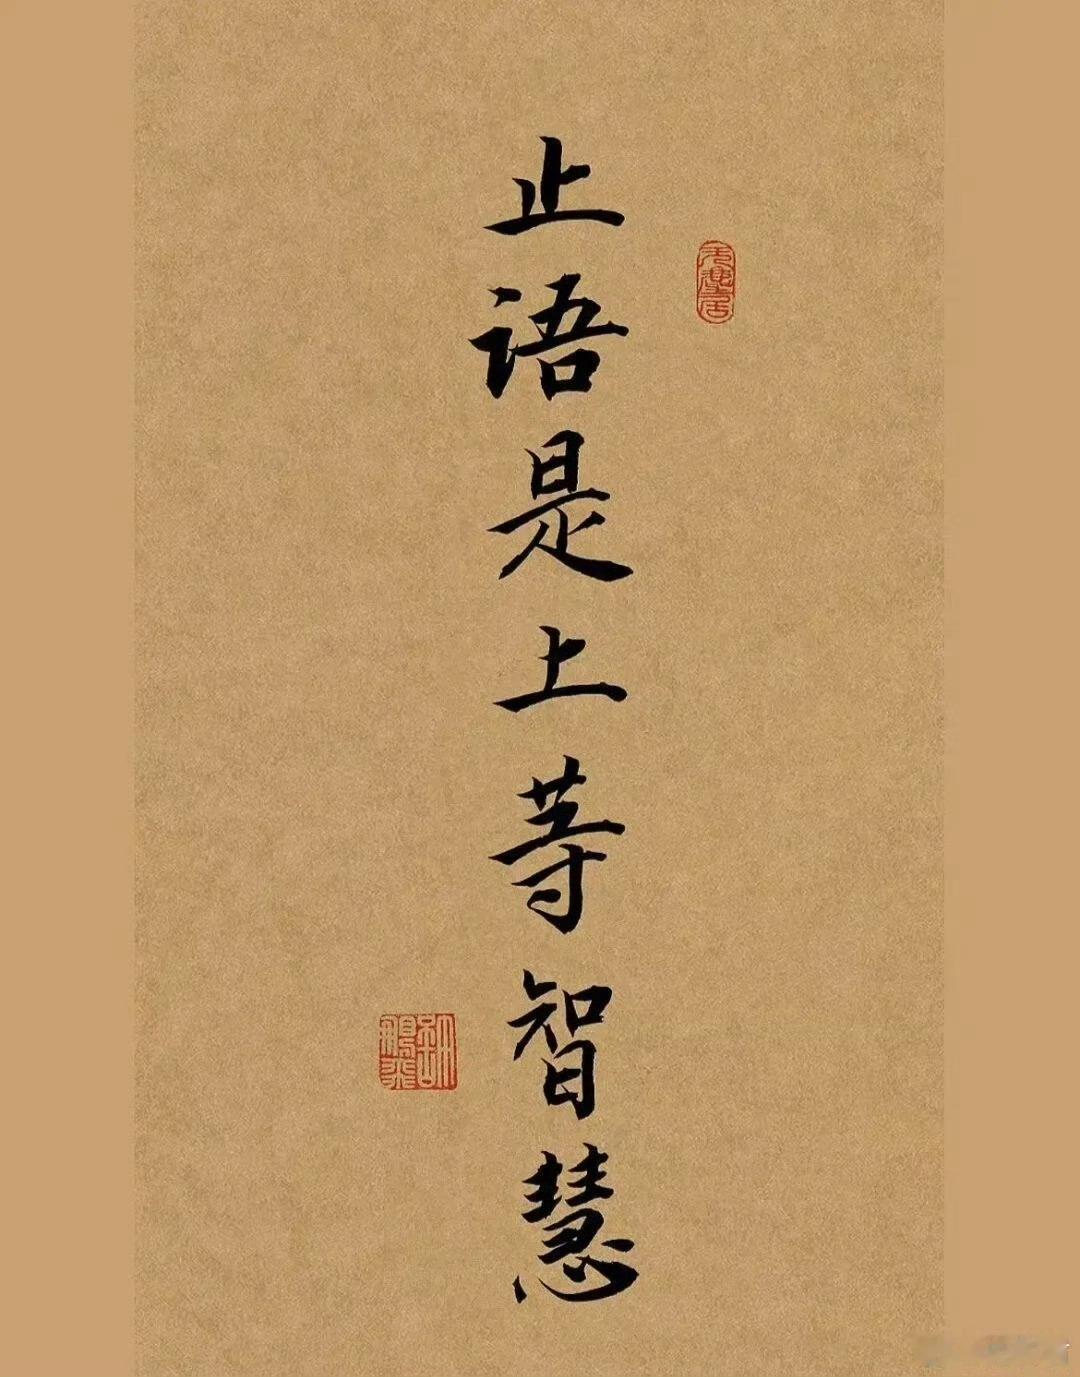 止语是上等智慧